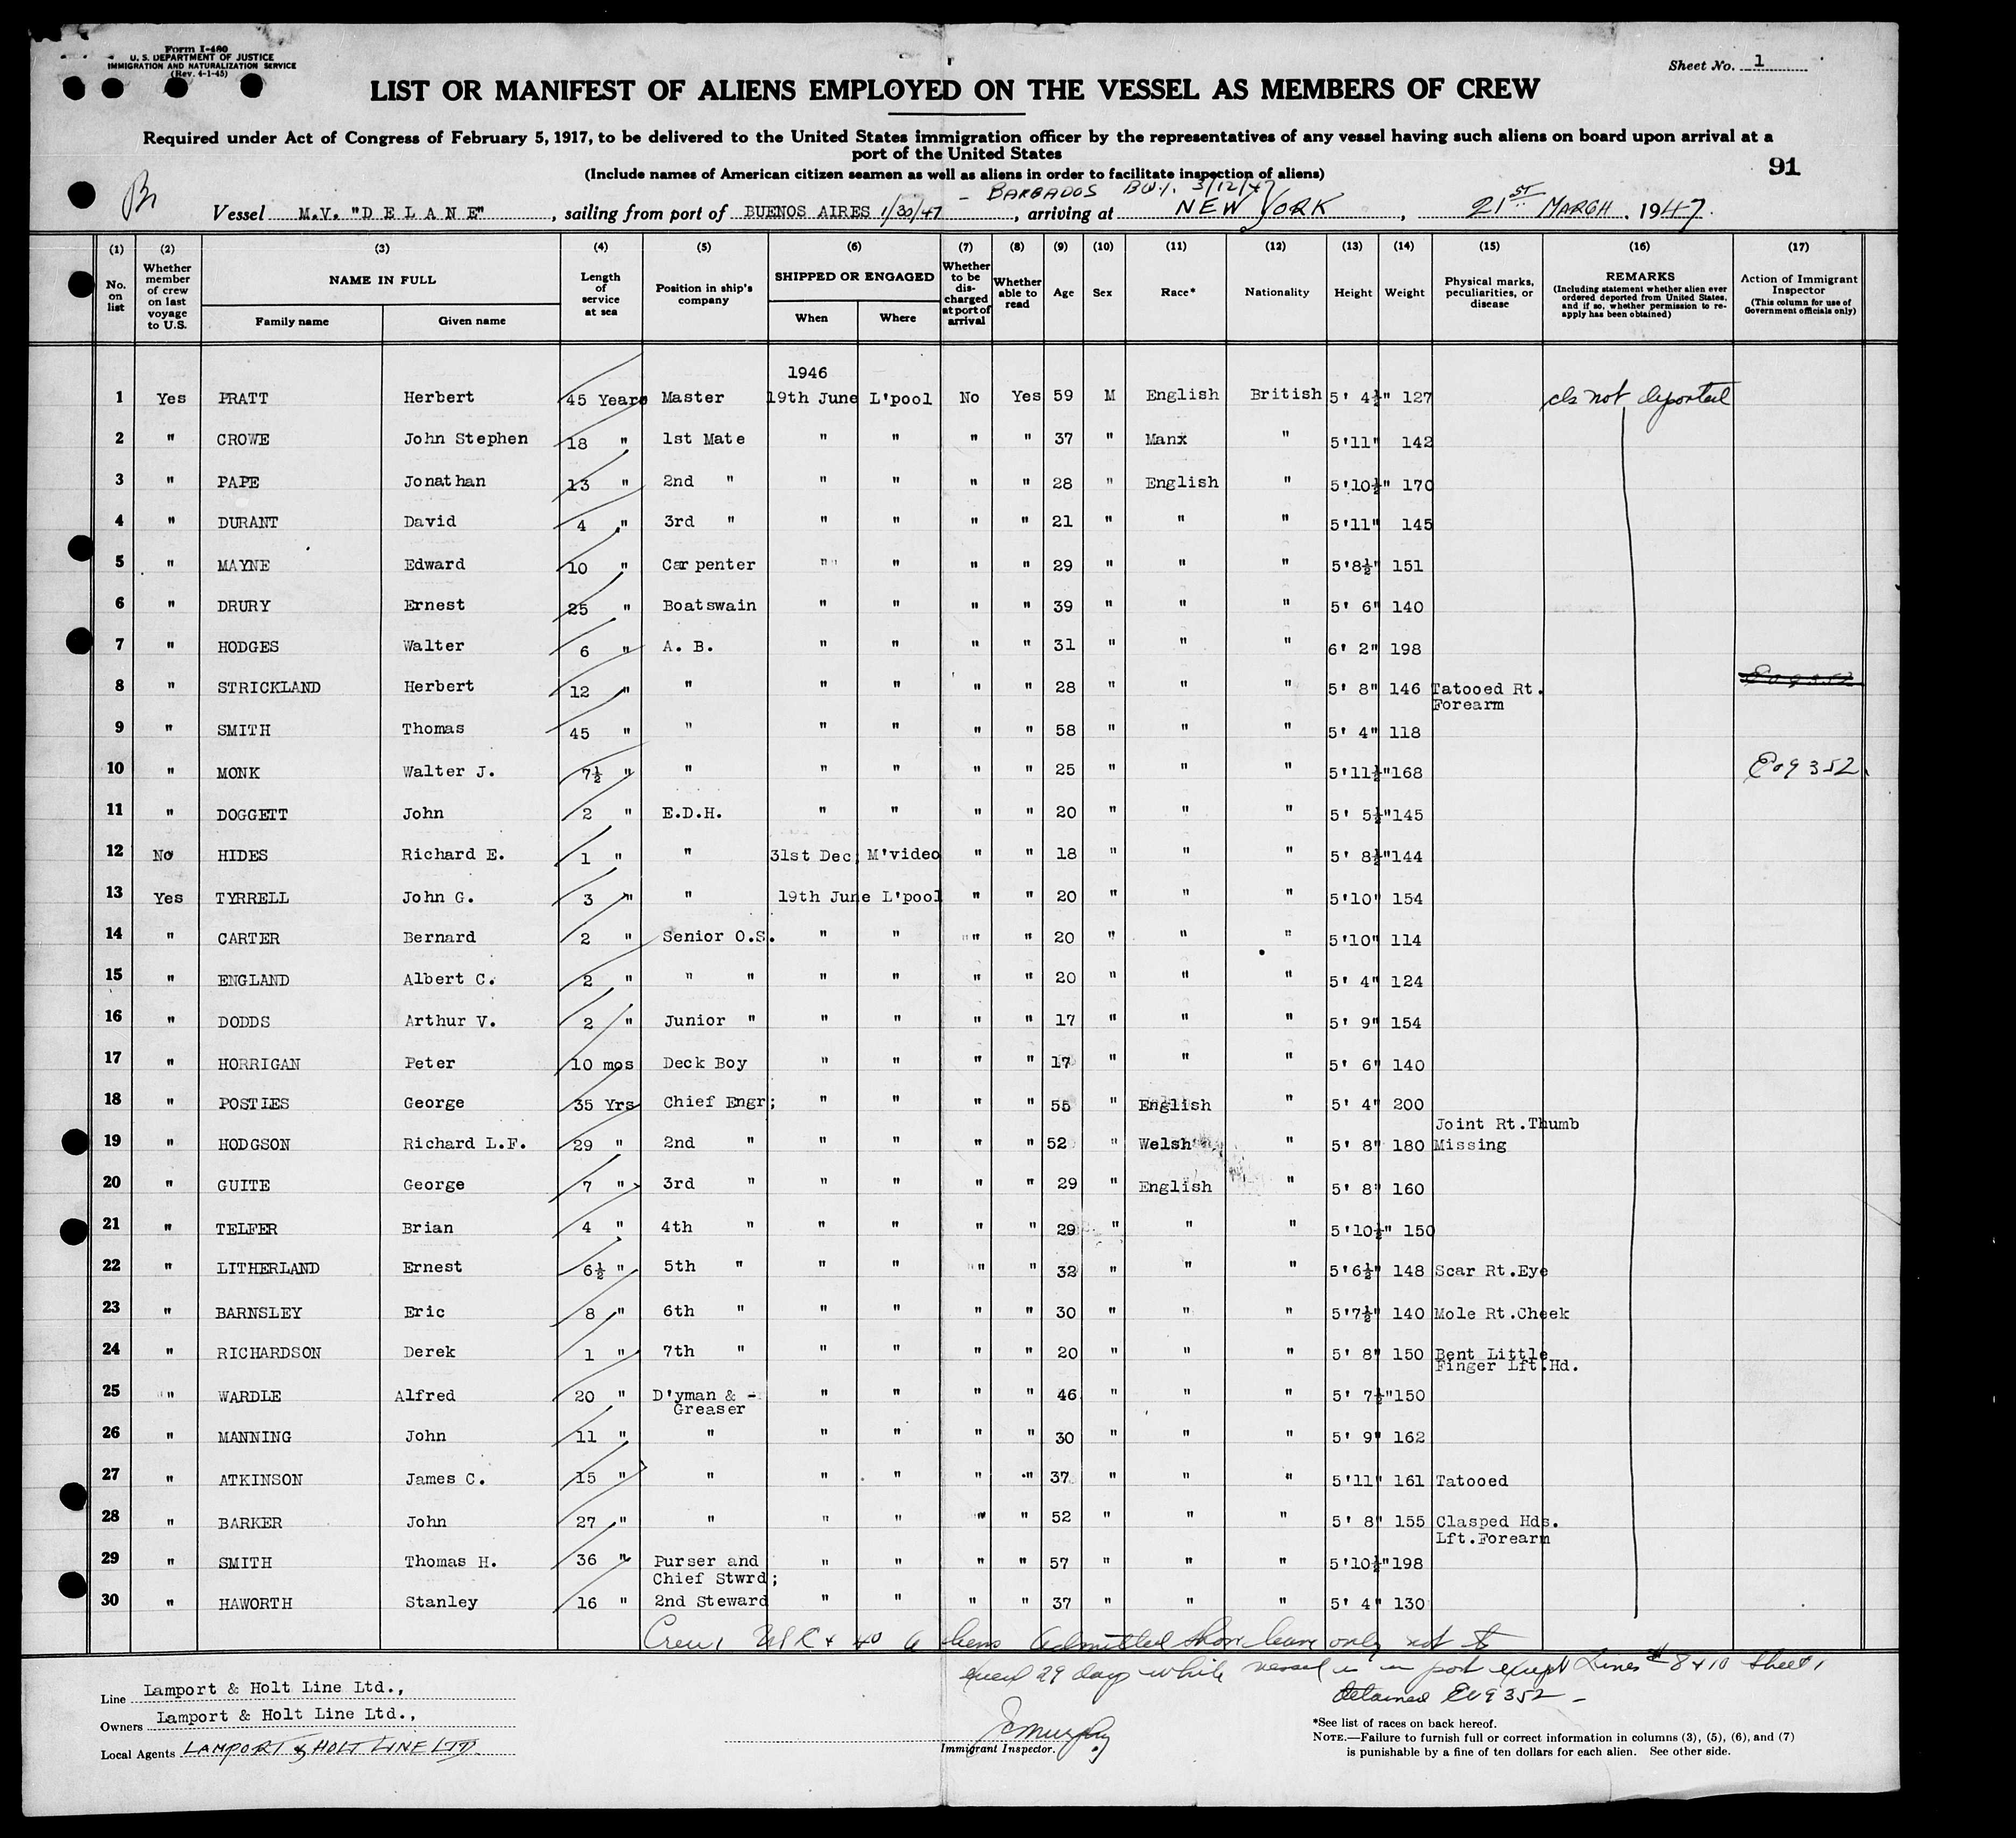 Form I-480
U. S. DEPARTMENT OF JUSTICE
IMMIGRATION AND NATURALIZATION SERVICE
(Rev. 4-1-45)
Sheet No. 1
LIST OR MANIFEST OF ALIENS EMPLOYED ON THE VESSEL AS MEMBERS OF CREW
Required under Act of Congress of February 5, 1917, to be delivered to the United States immigration officer by the representatives of any vessel having such aliens on board upon arrival at a
port of the United States
91
(Include names of American citizen seamen as well as aliens in order to facilitate inspection of aliens)
- BARBADOS B.W.I. 3/12/47
Vessel M.V. "D E L A N E", sailing from port of BUENOS AIRES 1/30/47, arriving at NEW YORK, 21ST MARCH, 1947.
(1) (2) (3) (4) (5) (6) (7) (8) (9) (10) (11) (12) (13) (14) (15) (16) (17)
No. on list
Whether member of crew on last voyage to U.S.
NAME IN FULL
Family name
Given name
Length of service at sea
Position in ship's company
SHIPPED OR ENGAGED
When
Where
Whether to be discharged at port of arrival
Whether able to read
Age
Sex
Race*
Nationality
Height
Weight
Physical marks, peculiarities, or disease
REMARKS
(Including statement whether alien ever ordered deported from United States, and if so, whether permission to re-apply has been obtained)
Action of Immigrant Inspector
(This column for use of Government officials only)
1946
1 Yes PRATT Herbert 45 Years Master 19th June L'pool No Yes 59 M English British 5' 4½" 127 not deported
2 " CROWE John Stephen 18 " 1st Mate " " " " 37 " Manx " 5'11" 142
3 " PAPE Jonathan 13 " 2nd " " " " " 28 " English " 5'10½" 170
4 " DURANT David 4 " 3rd " " " " " 21 " " " 5'11" 145
5 " MAYNE Edward 10 " Carpenter " " " " 29 " " " 5'8½" 151
6 " DRURY Ernest 25 " Boatswain " " " " 39 " " " 5' 6" 140
7 " HODGES Walter 6 " A. B. " " " " 31 " " " 6' 2" 198
8 " STRICKLAND Herbert 12 " " " " " " 28 " " " 5' 8" 146 Tatooed Rt. Forearm
9 " SMITH Thomas 45 " " " " " " 58 " " " 5' 4" 118
10 " MONK Walter J. 7½ " " " " " " 25 " " " 5'11½" 168 Eo9352
11 " DOGGETT John 2 " E.D.H. " " " " 20 " " " 5' 5½" 145
12 No HIDES Richard E. 1 " " 31st Dec; M'video " " 18 " " " 5' 8½" 144
13 Yes TYRRELL John G. 3 " " 19th June L'pool " " 20 " " " 5'10" 154
14 " CARTER Bernard 2 " Senior O.S. " " " " 20 " " " 5'10" 114
15 " ENGLAND Albert C. 2 " " " " " " " 20 " " " 5' 4" 124
16 " DODDS Arthur V. 2 " Junior " " " " " 17 " " " 5' 9" 154
17 " HORRIGAN Peter 10 mos Deck Boy " " " " 17 " " " 5' 6" 140
18 " POSTLES George 35 Yrs Chief Engr; " " " " 55 " English " 5' 4" 200
19 " HODGSON Richard L.F. 29 " 2nd " " " " " 52 " Welsh " 5' 8" 180 Joint Rt.Thumb Missing
20 " GUITE George 7 " 3rd " " " " " 29 " English " 5' 8" 160
21 " TELFER Brian 4 " 4th " " " " " 29 " " " 5'10½" 150
22 " LITHERLAND Ernest 6½ " 5th " " " " " 32 " " " 5'6½" 148 Scar Rt.Eye
23 " BARNSLEY Eric 8 " 6th " " " " " 30 " " " 5'7½" 140 Mole Rt.Cheek
24 " RICHARDSON Derek 1 " 7th " " " " " 20 " " " 5' 8" 150 Bent Little Finger Lft.Hd.
25 " WARDLE Alfred 20 " D'yman & - Greaser " " " " 46 " " " 5' 7½" 150
26 " MANNING John 11 " " " " " " 30 " " " 5' 9" 162
27 " ATKINSON James C. 15 " " " " " " 37 " " " 5'11" 161 Tatooed
28 " BARKER John 27 " " " " " " 52 " " " 5' 8" 155 Clasped Hds. Lft.Forearm
29 " SMITH Thomas H. 36 " Purser and Chief Stwrd; " " " " 57 " " " 5'10½" 198
30 " HAWORTH Stanley 16 " 2nd Steward " " " " 37 " " " 5' 4" 130
Crew admitted shore leave only not to
exceed 29 days while vessel is in port except Lines # 8 & 10 Sheet 1
detained Eo9352 -
Line Lamport & Holt Line Ltd.,
Owners Lamport & Holt Line Ltd.,
Local Agents LAMPORT & HOLT LINE LTD.
JCMurphy
Immigrant Inspector.
*See list of races on back hereof.
NOTE.—Failure to furnish full or correct information in columns (3), (5), (6), and (7)
is punishable by a fine of ten dollars for each alien. See other side.